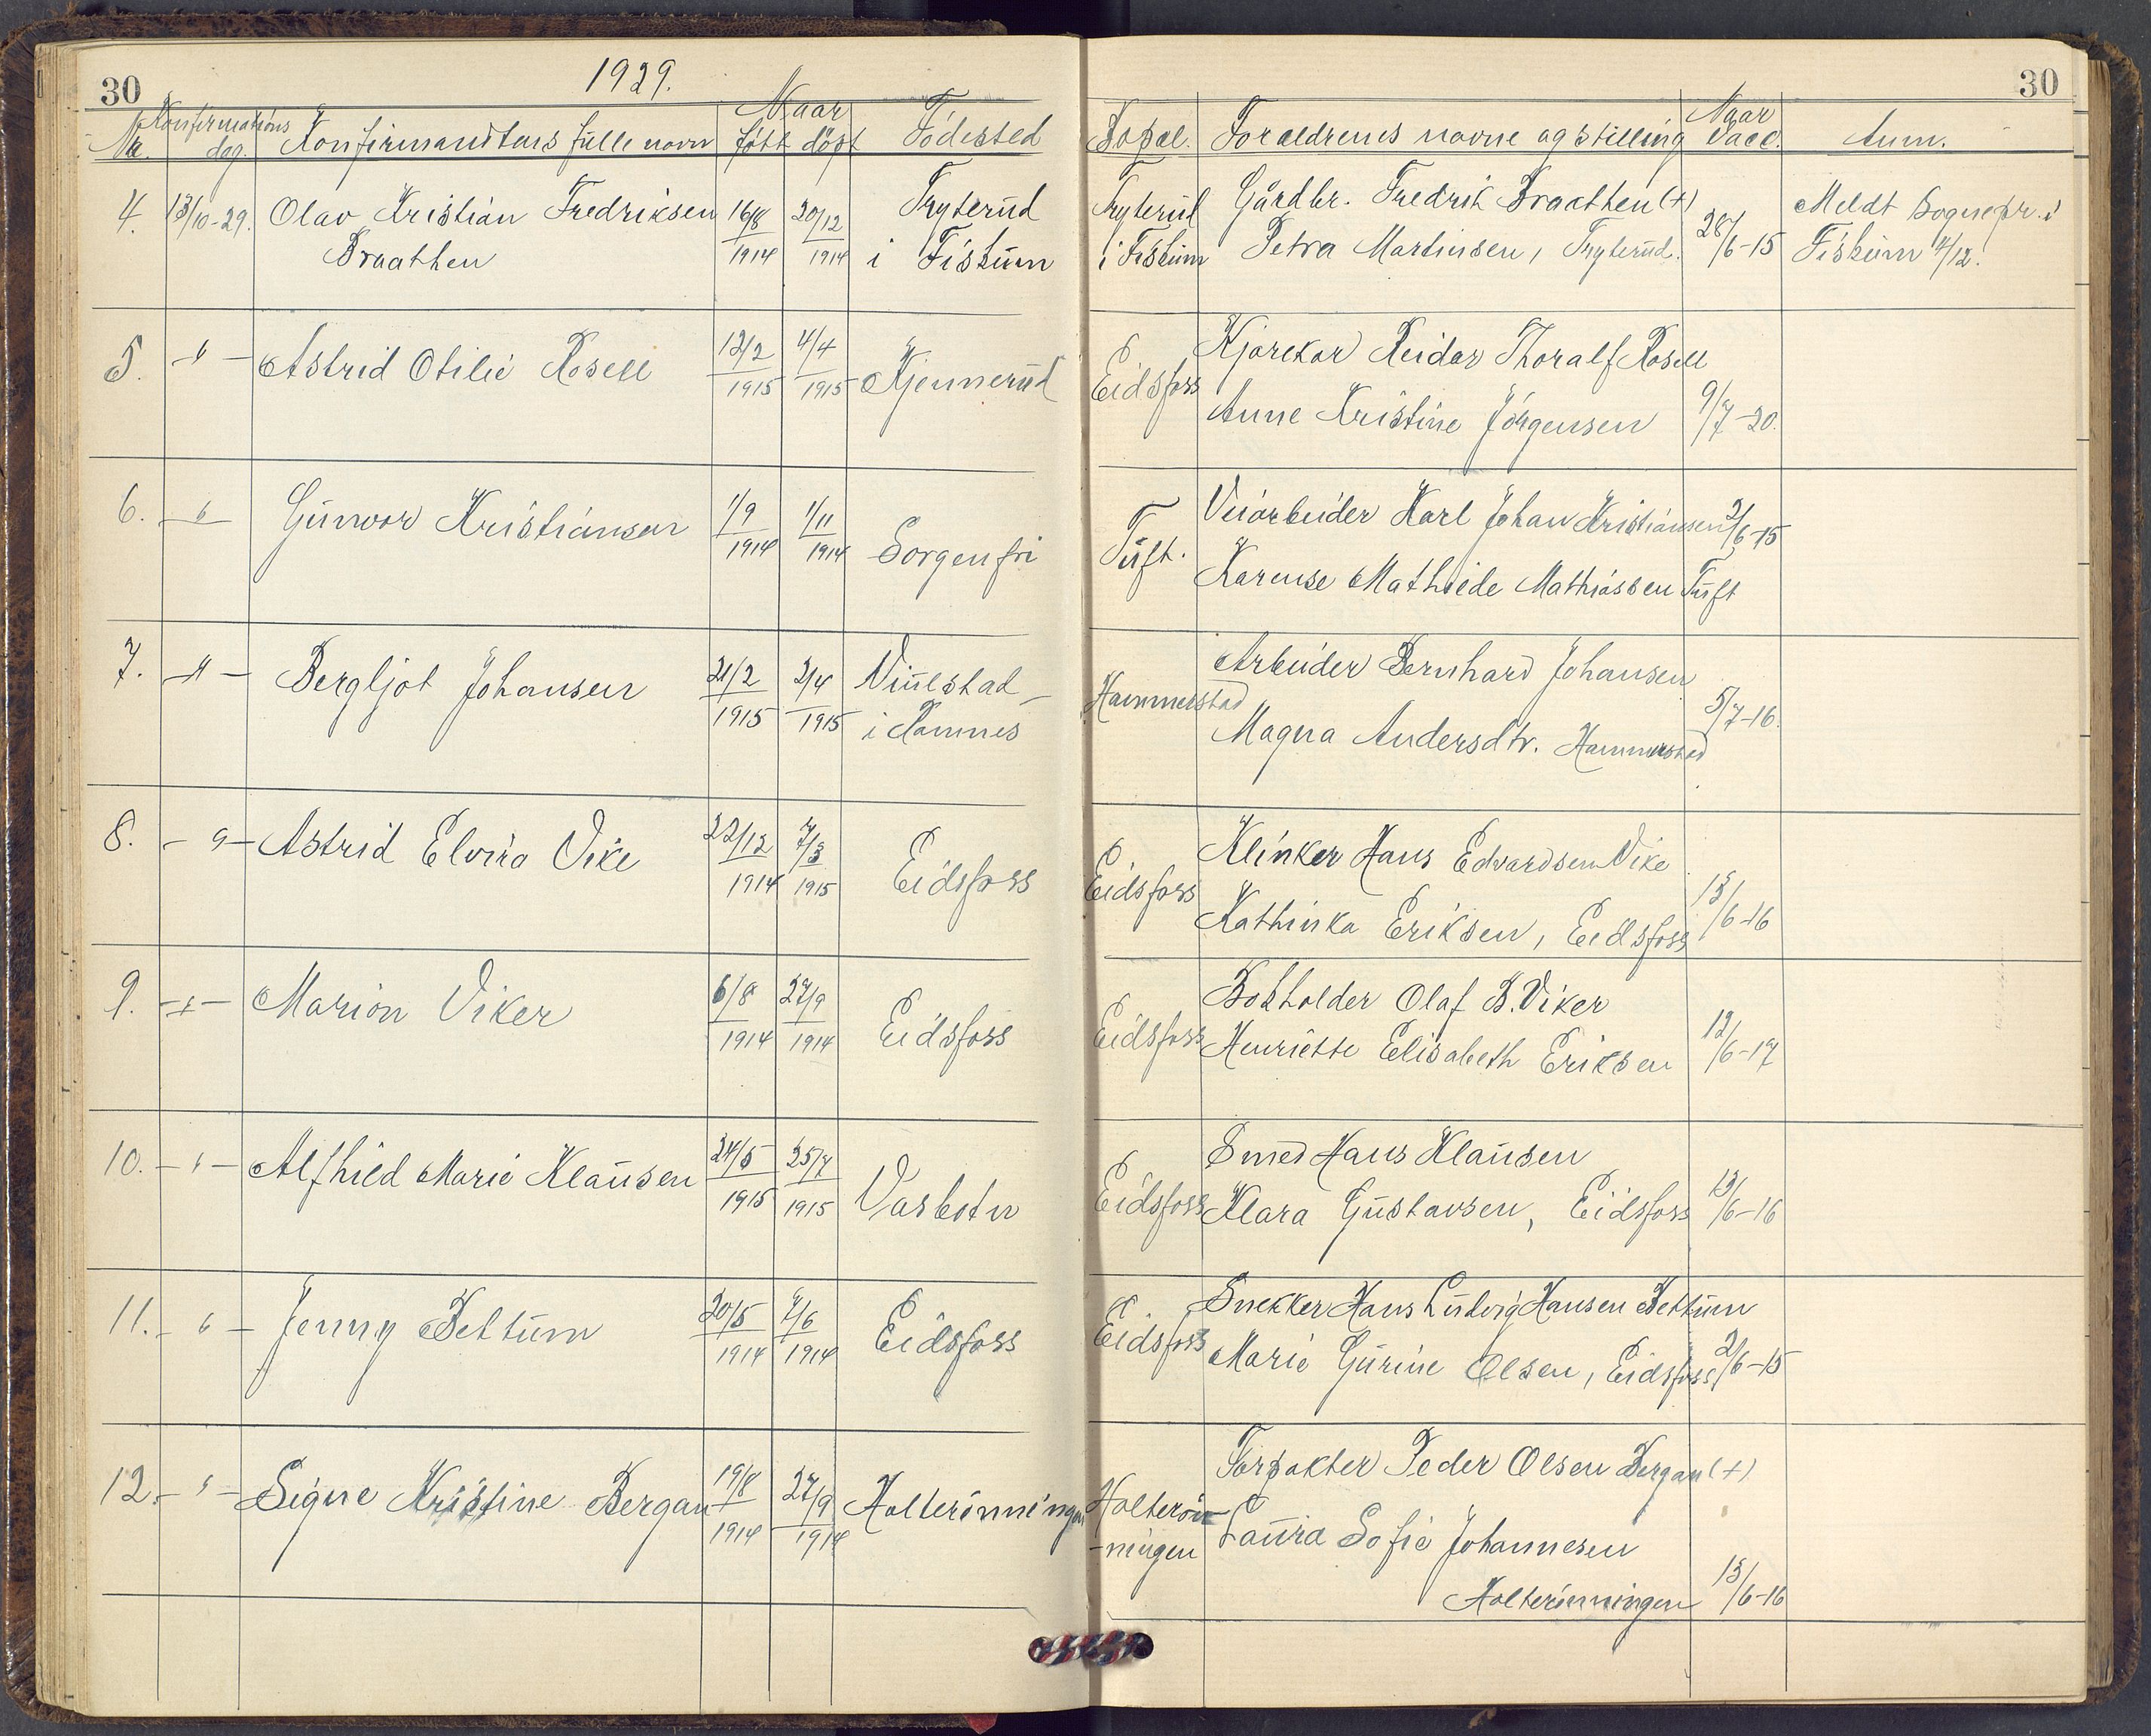 30
1929.
30
No. Konfirmations dag. Konfirmandens fulle navn Naar født døpt Födested Bopæl. Foraeldrenes navne og stilling Naar vacc. Anm.
4. 13/10-29. Olav Kristian Fredriksen 16/8 20/12 Tryterud Tryterud Gårdbr. Fredrik Braathen (+) Meldt Sognepr. i
Braathen 1914 1914 i Fiskum i Fiskum Petra Martinsen, Tryterud. 28/6-15 Fiskum 4/12.
5. -"- Astrid Otilie Rosell 12/2 4/4 Kjennerud E. Kjørekar Reidar Thoralf Rosell
1915 1915 Eidsfoss Anne Kristine Jörgensen 9/7-20.
6. -"- Gunvor Kristiansen 1/9 1/11 Sorgenfri Tuft. Veiarbeider Karl Johan Kristiansen 2/6-15
1914 1914 Karense Mathilde Mathiassen Tuft
7. -"- Bergljot Johansen 21/2 2/4 Vinelstad Hammerstad Arbeider Bernhard Johansen
1915 1915 i Ramnes Magna Andersdtr. Hammerstad 5/7-16.
8. -"- Astrid Elvira Vike 22/12 7/3 Eidsfoss E. Klinker Hans Edvardsen Vike
1914 1915 Eidsfoss Kathinka Eriksen, Eidsfoss 13/6-16
9. -"- Marion Viker 6/8 27/9 Eidsfoss Eidsfoss Bokholder Olaf B. Viker
1914 1914 Henriette Elisabeth Eriksen 12/6-17
10. -"- Alfhild Marie Klausen 24/5 25/7 Vasbotn E. Smed Hans Klausen
1915 1915 Eidsfoss Klara Gustavsen, Eidsfoss 13/6-16
11. -"- Jenny Bettum 20/5 7/6 Eidsfoss E. Snekker Hans Ludvig Hansen Bettum
1914 1914 Eidsfoss Marie Gurine Olsen, Eidsfoss 2/6-15
12. -"- Signe Kristine Bergan 19/8 27/9 Holterönningen Holterön Forpakter Peder Olsen Bergan (+)
1914 1914 -ningen Laura Sofie Johannesen
Holterönningen 13/6-16